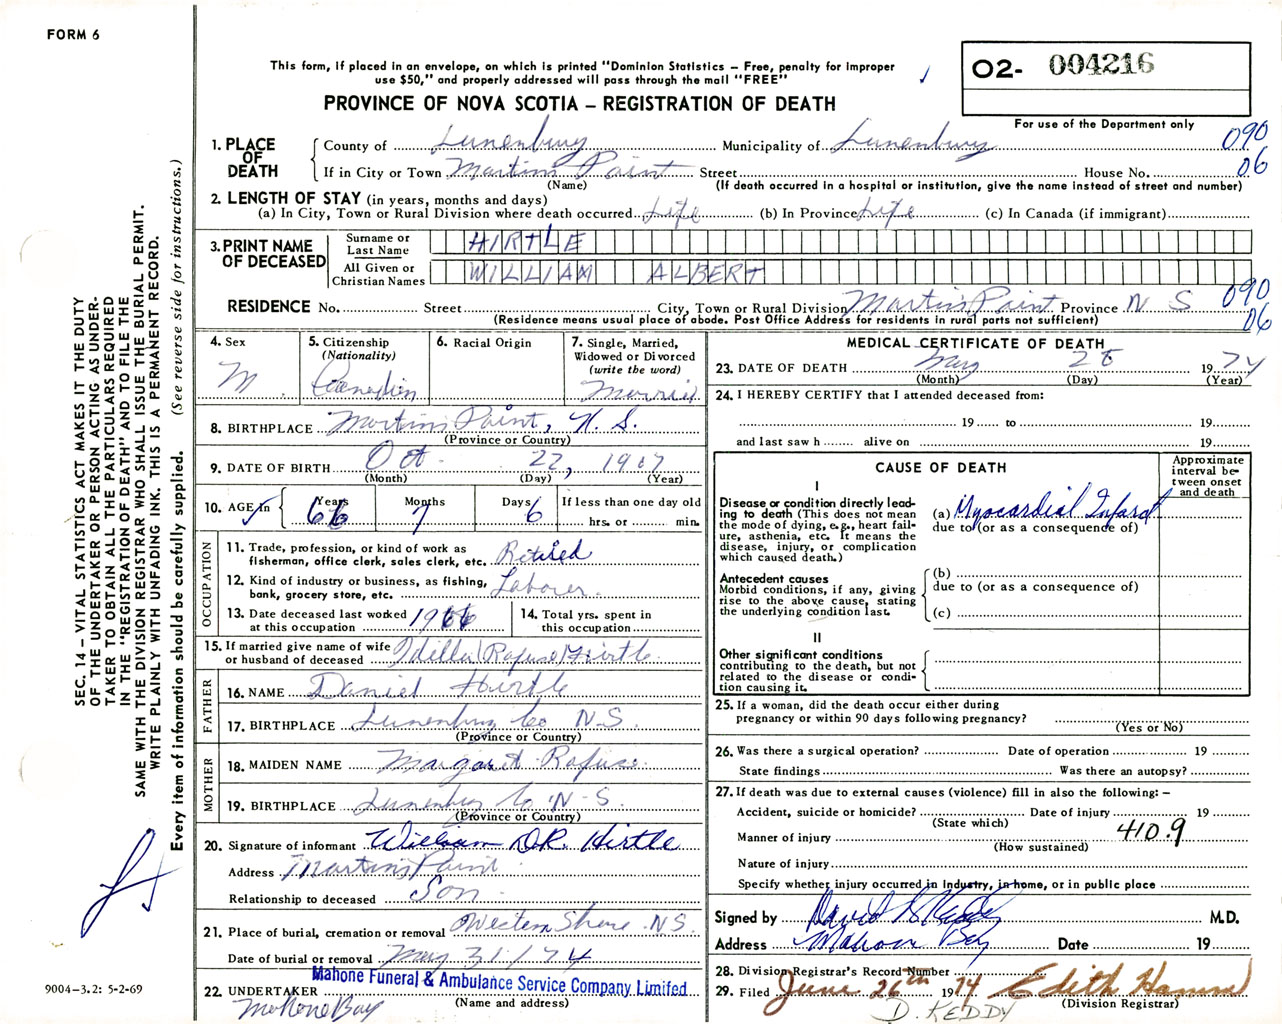 FORM 6
This form, if placed in an envelope, on which is printed "Dominion Statistics – Free, penalty for improper
use $50," and properly addressed will pass through the mail "FREE"
O2- 004216
PROVINCE OF NOVA SCOTIA – REGISTRATION OF DEATH
For use of the Department only
1. PLACE OF DEATH County of Lunenburg Municipality of Lunenburg 090
If in City or Town Martins Point Street House No. 06
(Name) (If death occurred in a hospital or institution, give the name instead of street and number)
2. LENGTH OF STAY (in years, months and days)
(a) In City, Town or Rural Division where death occurred Life (b) In Province Life (c) In Canada (if immigrant)
3. PRINT NAME OF DECEASED Surname or Last Name HIRTLE
All Given or Christian Names WILLIAM ALBERT
RESIDENCE No. Street City, Town or Rural Division Martins Point Province N S 090
06
(Residence means usual place of abode. Post Office Address for residents in rural parts not sufficient)
4. Sex M.
5. Citizenship (Nationality) Canadian
6. Racial Origin
7. Single, Married, Widowed or Divorced (write the word) Married
8. BIRTHPLACE Martins Point, N. S.
(Province or Country)
9. DATE OF BIRTH Oct. 22, 1907
(Month) (Day) (Year)
10. AGE in Years 66 Months 7 Days 6 If less than one day old
hrs. or min.
OCCUPATION
11. Trade, profession, or kind of work as
fisherman, office clerk, sales clerk, etc. Retired
12. Kind of industry or business, as fishing,
bank, grocery store, etc. Laborer.
13. Date deceased last worked
at this occupation 1966
14. Total yrs. spent in
this occupation
15. If married give name of wife
or husband of deceased Idella (Rafuse) Hirtle
FATHER
16. NAME Daniel Hirtle
17. BIRTHPLACE Lunenburg Co N.S.
(Province or Country)
MOTHER
18. MAIDEN NAME Margaret Rafuse
19. BIRTHPLACE Lunenburg Co N-S.
(Province or Country)
20. Signature of informant William D.R. Hirtle
Address Martin's Point
Relationship to deceased Son
21. Place of burial, cremation or removal Western Shore N.S.
Date of burial or removal May 31/74
22. UNDERTAKER Mahone Funeral & Ambulance Service Company Limited
(Name and address)
Mahone Bay
MEDICAL CERTIFICATE OF DEATH
23. DATE OF DEATH May 28 1974
(Month) (Day) (Year)
24. I HEREBY CERTIFY that I attended deceased from:
19 to 19
and last saw h alive on 19
CAUSE OF DEATH
Approximate interval between onset and death
I
Disease or condition directly lead-
ing to death (This does not mean
the mode of dying, e.g., heart fail-
ure, asthenia, etc. It means the
disease, injury, or complication
which caused death.)
(a) Myocardial Infarct
due to (or as a consequence of)
Antecedent causes
Morbid conditions, if any, giving
rise to the above cause, stating
the underlying condition last.
(b)
due to (or as a consequence of)
(c)
II
Other significant conditions
contributing to the death, but not
related to the disease or condi-
tion causing it.
25. If a woman, did the death occur either during
pregnancy or within 90 days following pregnancy?
(Yes or No)
26. Was there a surgical operation? Date of operation 19
State findings Was there an autopsy?
27. If death was due to external causes (violence) fill in also the following: –
Accident, suicide or homicide? Date of injury 19
(State which)
Manner of injury 410.9
(How sustained)
Nature of injury
Specify whether injury occurred in Industry, in home, or in public place
Signed by David S Keddy M.D.
Address Mahone Bay Date 19
28. Division Registrar's Record Number
29. Filed June 26th 1974 Edith Hamm
(Division Registrar)
D. KEDDY
SEC. 14 – VITAL STATISTICS ACT MAKES IT THE DUTY
OF THE UNDERTAKER OR PERSON ACTING AS UNDER-
TAKER TO OBTAIN ALL THE PARTICULARS REQUIRED
IN THE "REGISTRATION OF DEATH" AND TO FILE THE
SAME WITH THE DIVISION REGISTRAR WHO SHALL ISSUE THE BURIAL PERMIT.
WRITE PLAINLY WITH UNFADING INK. THIS IS A PERMANENT RECORD.
Every item of information should be carefully supplied. (See reverse side for instructions.)
9004-3.2: 5-2-69